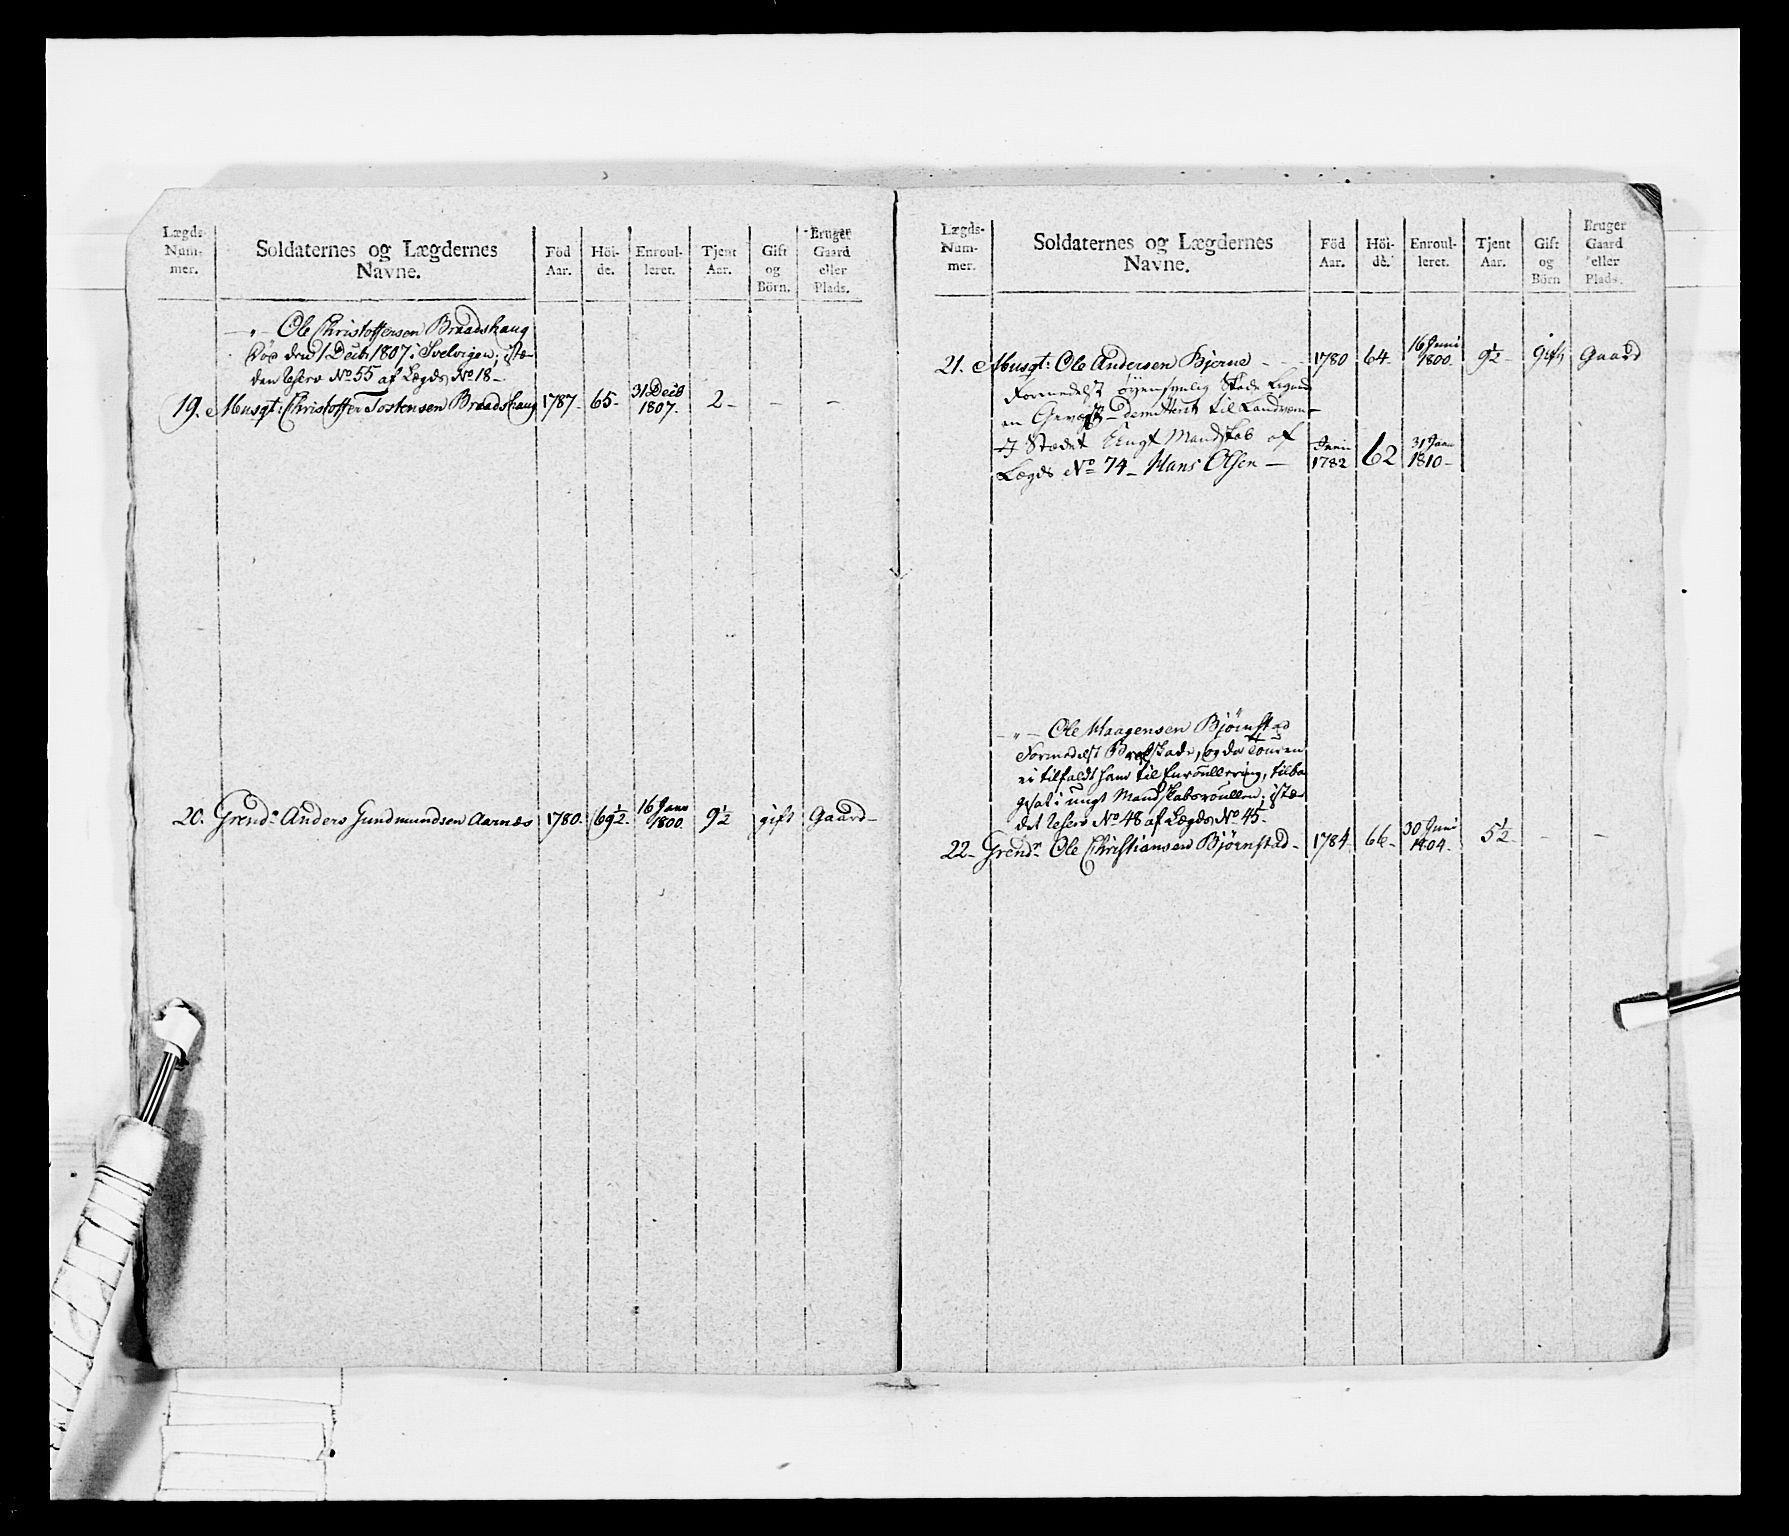 Lægds-Num-mer. Soldaternes og Lægdernes Navne. Föd Aar. Höi-de. Enroul-leret. Tjent Aar. Gift og Börn. Bruger Gaard eller Plads.
— „ — Ole Christoffersen Braadshaug
död den 1 Decb 1807 i Svelvigen; istæ-
den Reserv No 55 af Lægds No 18 —
19. Musqt: Christoffer Tostensen Braadshaug 1787 - 65 - 31 Decb 1807. 2 - — —
20. Grendr Anders Gundmundsen Aarnæs 1780. 69½ - 16 Janv 1800. 9½ gift Gaard —
Lægds-Num-mer. Soldaternes og Lægdernes Navne. Föd Aar. Höi-de. Enroul-leret. Tjent Aar. Gift og Börn Bruger Gaard eller Plads.
21. Musqt: Ole Andersen Bjerne - - - 1780 64 - 16 Juni 1800. 9½ - gift Gaard
Formedelst øyensynlig Skade
en demitteret til Landværn -
Stædet Ungt Mandskab af
Lægds No 74 - Hans Olsen — Juni 1782 62 31 Janv 1810 -
— „ — Ole Haagensen Bjørnstad
Formedelst Brokskade, og da Touren
ei tilfaldt ham til Enroullering, tilba-
gesat i ungt Mandskabsroullen; istæ-
det Reserv No 48 af Lægds No 45.
22 - Grendr Ole Christiansen Bjørnstad - 1784 66 - 30 Juni 1804. 5½ - — —